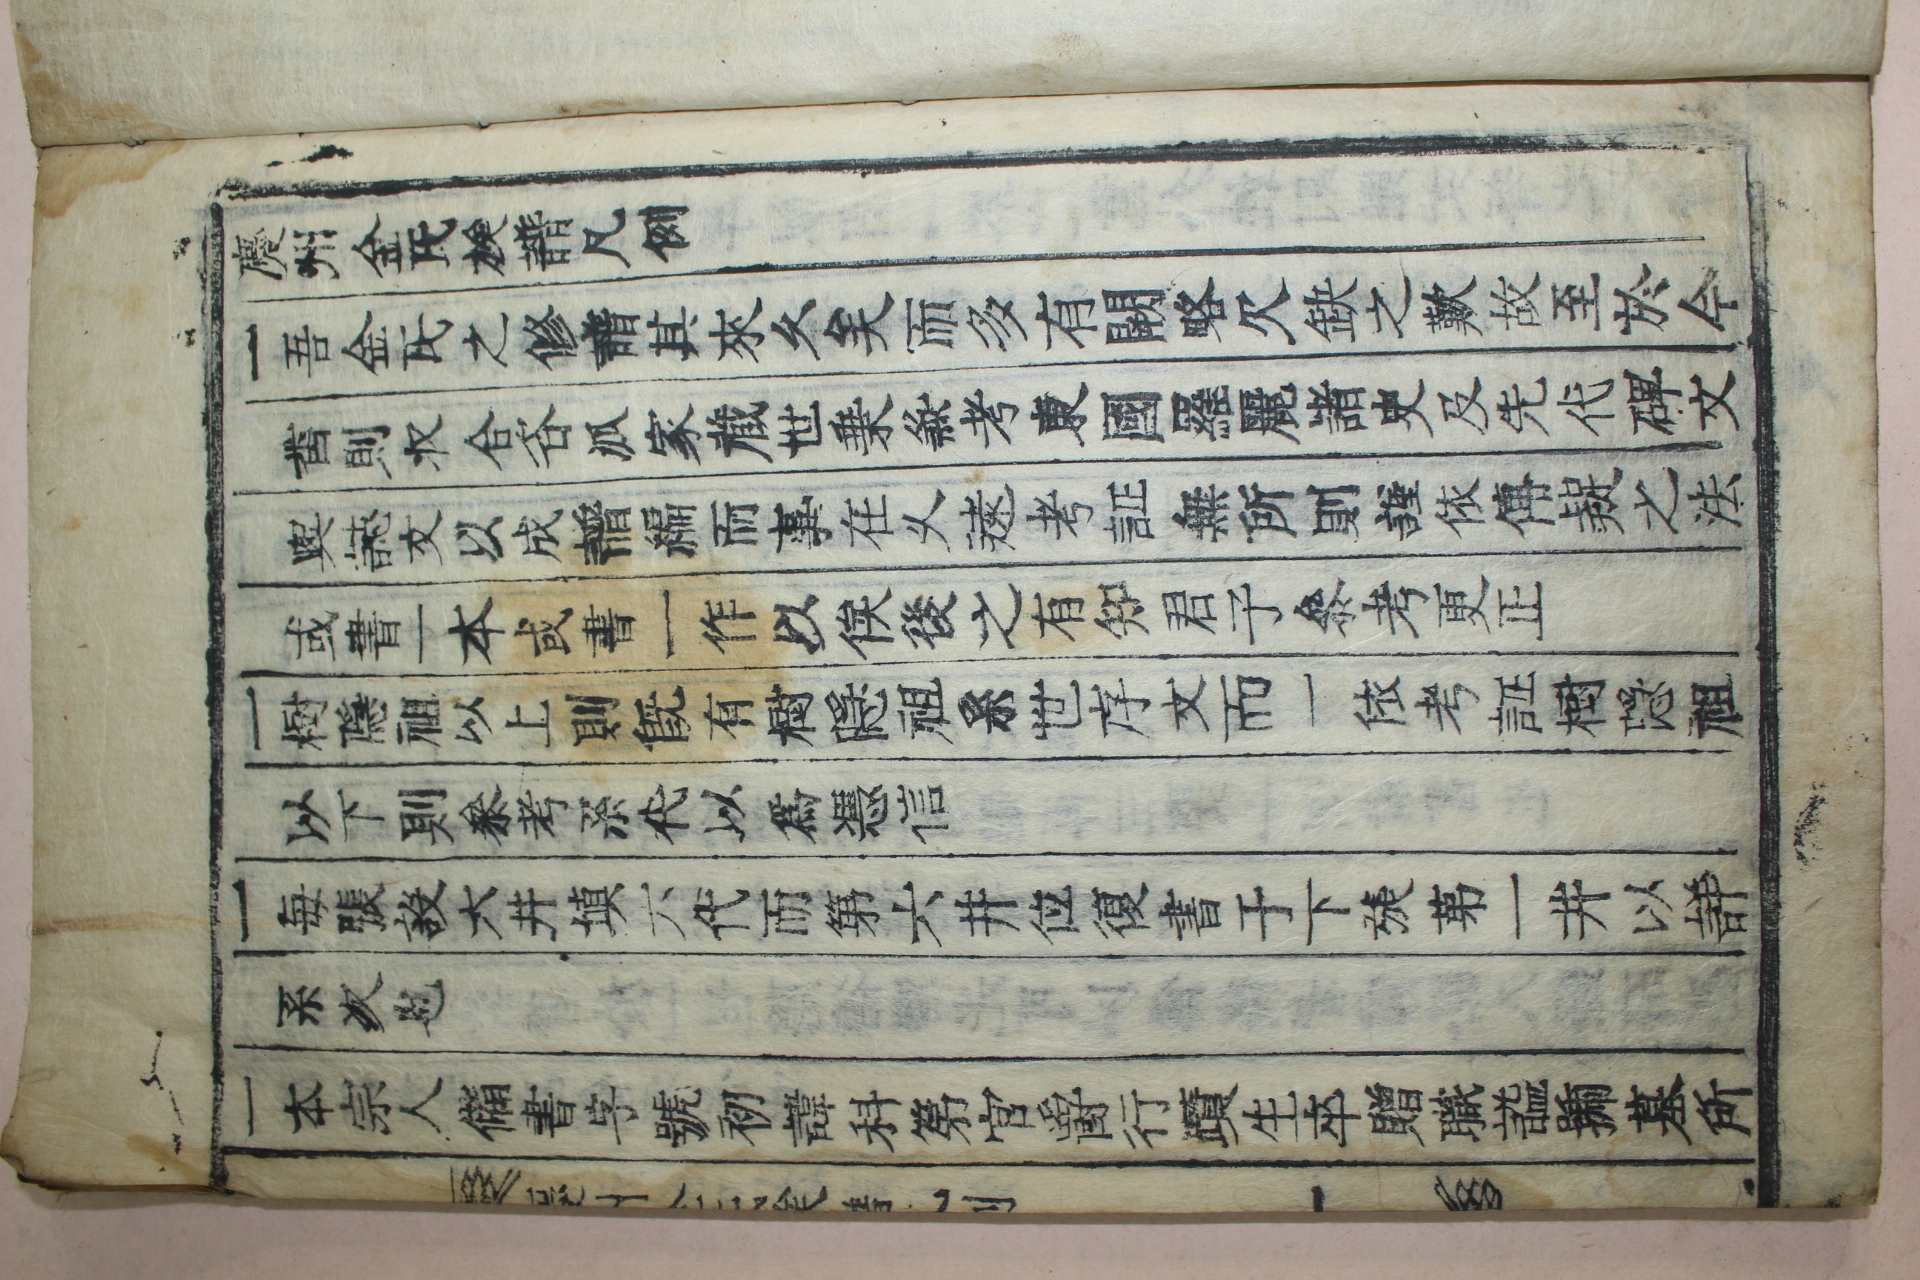 慶州金氏族譜凡例
一吾金氏之修譜其來久矣而多有闕略欠缺之歎故至於今
舊則収合各派家藏世乗叅考東國羅麗諸史及先代碑文
與誌文以成譜編而事在久遠考証無所則謹依傳疑之法
或書一本或書一作以俟後之有知君子叅考更正
一樹隱祖以上則旣有樹隱祖系世序文而一依考証樹隱祖
以下則叅考系代以爲憑信
一每張設六井塡六代而第六井位復書于下張第一井以詳
系次也
一本宗人備書字號初諱科第官爵行蹟生卒贈職謚號墓所
慶州金氏族譜凡例 一